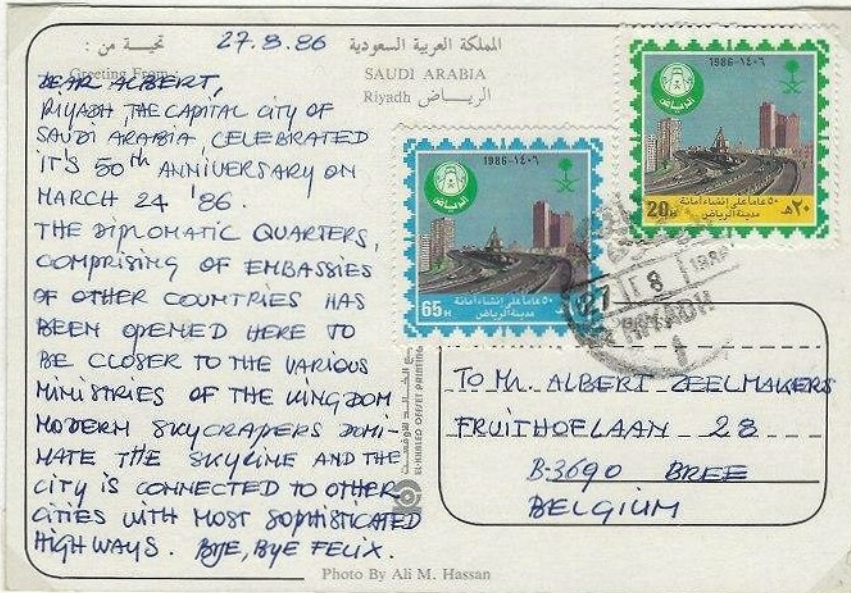 تحية من :
27.8.86
المملكة العربية السعودية
Greeting From :
SAUDI ARABIA
Riyadh الرياض
DEAR ALBERT,
RIYADH, THE CAPITAL CITY OF
SAUDI ARABIA, CELEBRATED
IT'S 50th ANNIVERSARY ON
MARCH 24 '86.
THE DIPLOMATIC QUARTERS,
COMPRISING OF EMBASSIES
OF OTHER COUNTRIES HAS
BEEN OPENED HERE TO
BE CLOSER TO THE VARIOUS
MINISTRIES OF THE KINGDOM
MODERN SKYCRAPERS DOMI-
NATE THE SKYLINE AND THE
CITY IS CONNECTED TO OTHER
CITIES WITH MOST SOPHISTICATED
HIGHWAYS. BYE, BYE FELIX.
1986-١٤٠٦
الرياض
٥٠ عاما على إنشاء أمانة
مدينة الرياض
65 H
1986-١٤٠٦
الرياض
٥٠ عاما على إنشاء أمانة
مدينة الرياض
20H
٢٠ هـ
27 8 1986
RIYADH
1
EL-KHALED OFFSET PRINTING
TO Mr. ALBERT ZEELMAKERS
FRUITHOFLAAN 28
B-3690 BREE
BELGIUM
Photo By Ali M. Hassan